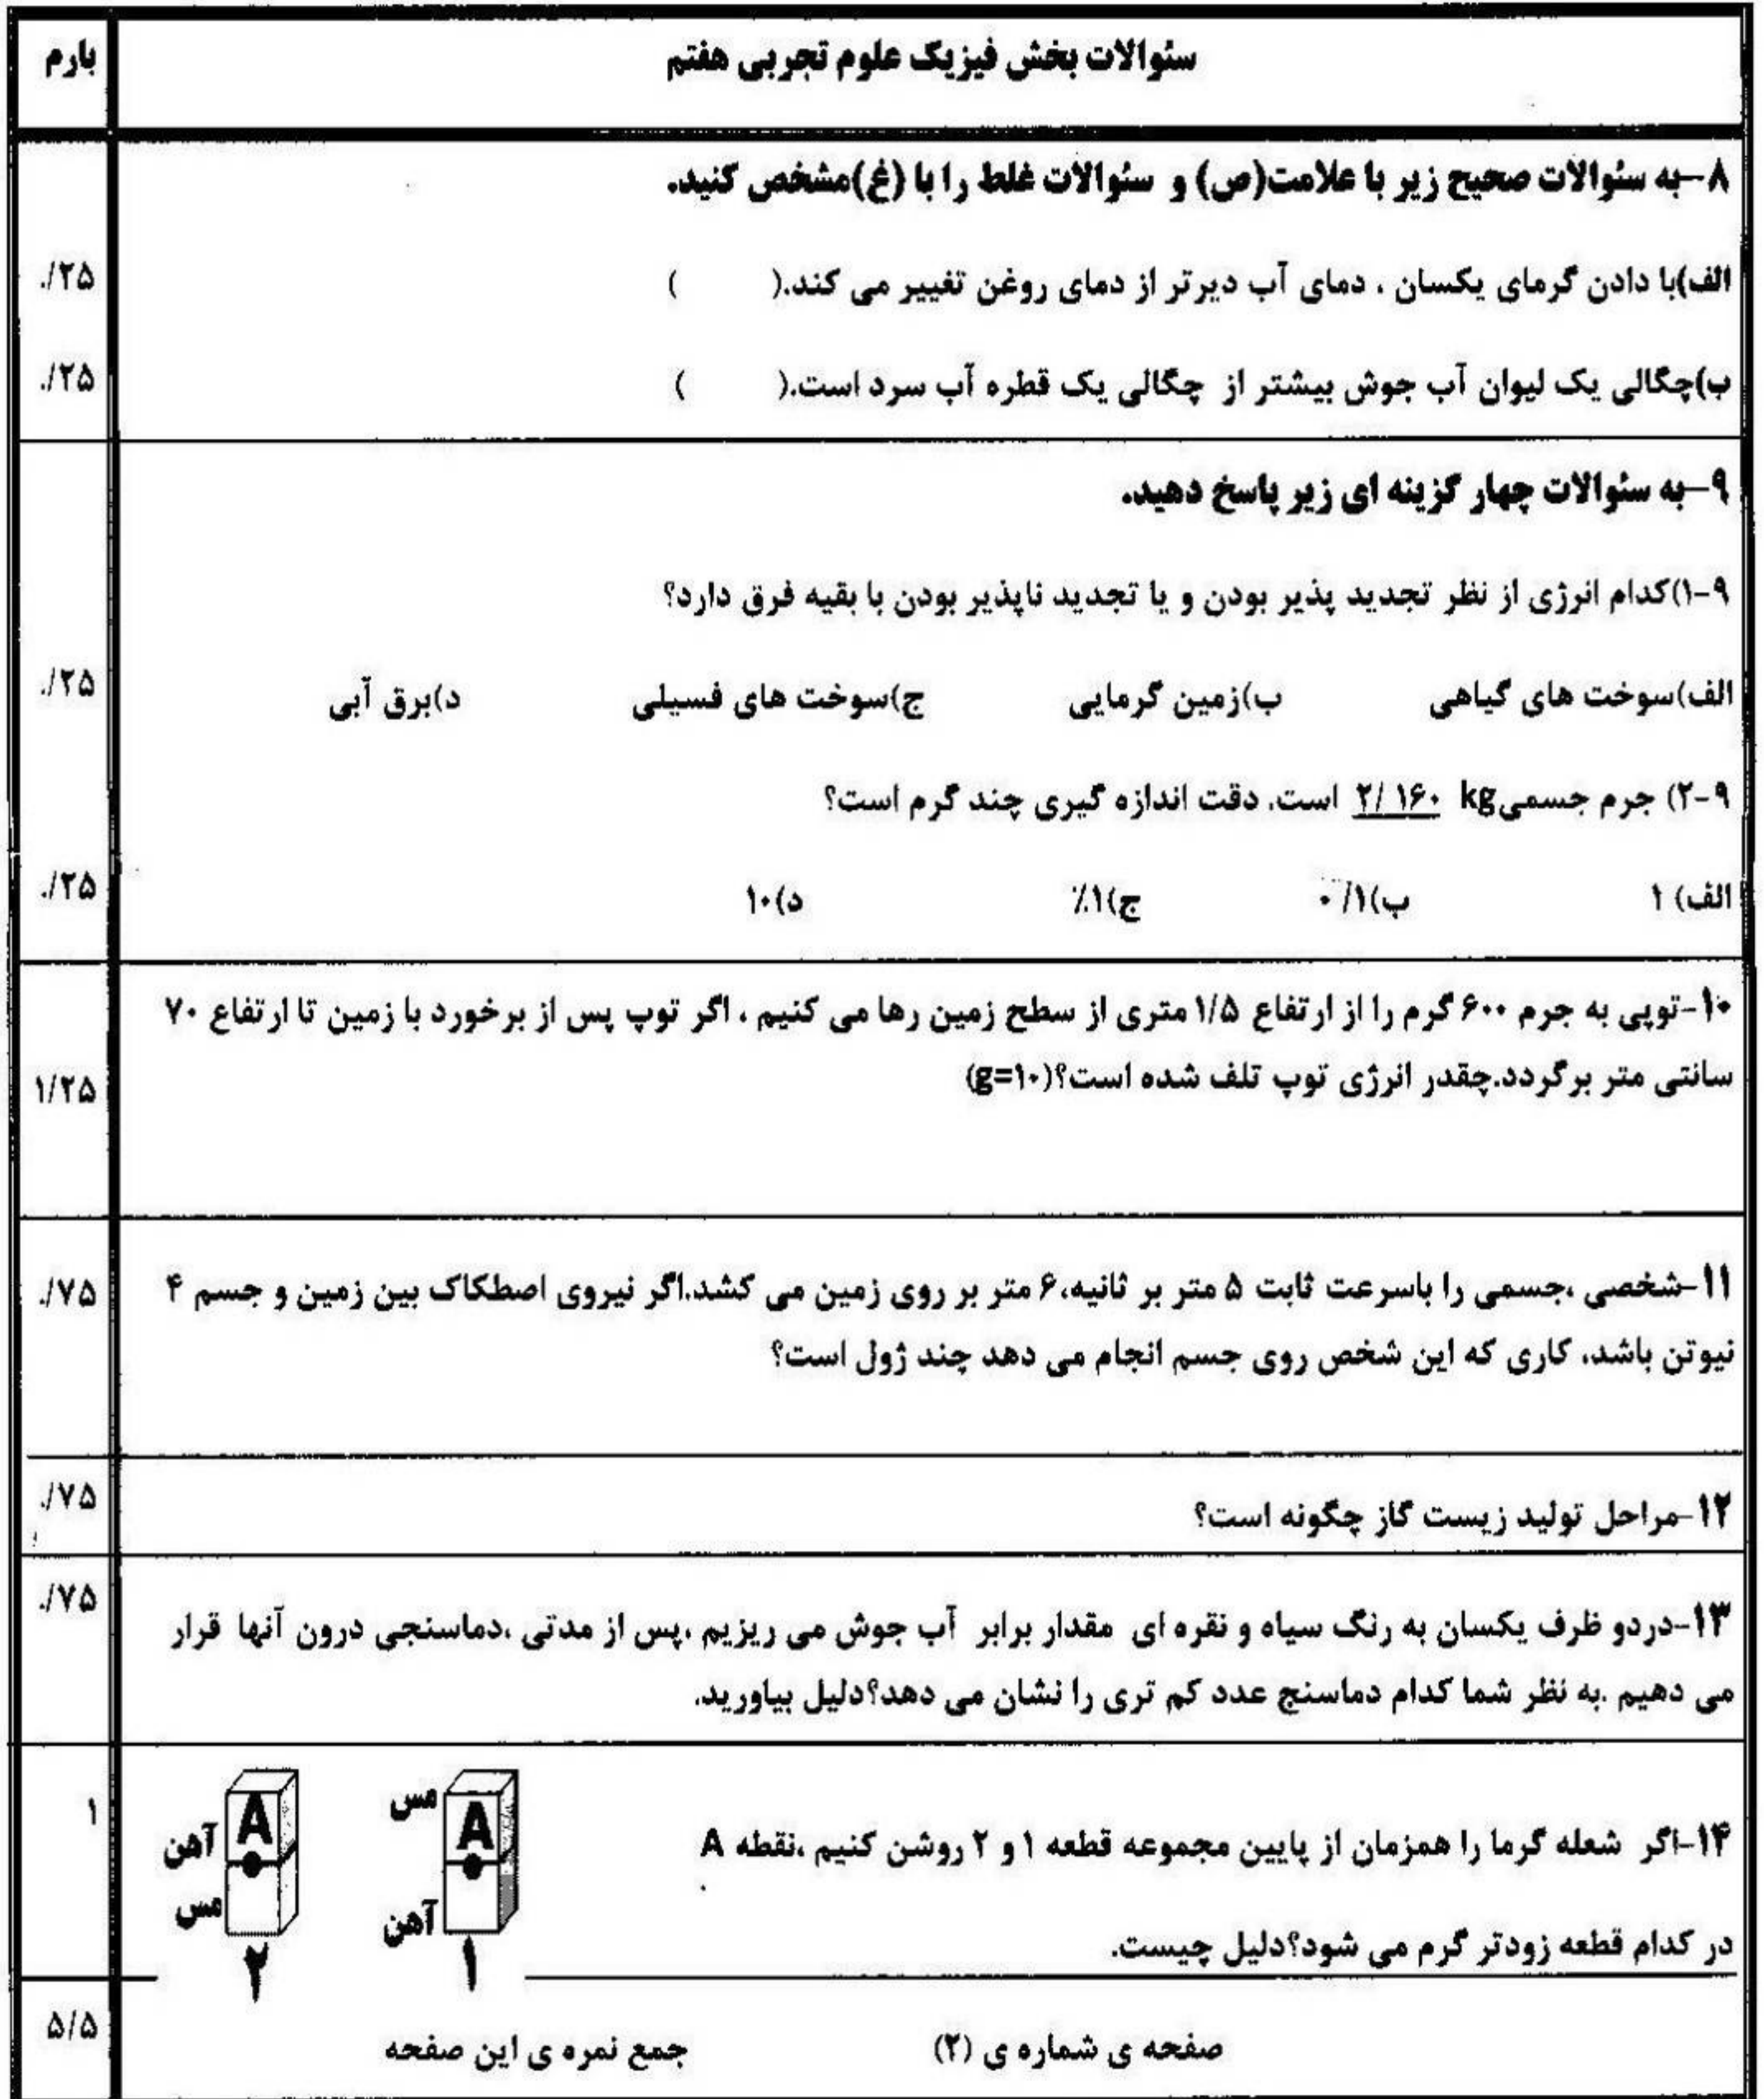 سئوالات بخش فیزیک علوم تجربی هفتم
بارم
۸-به سئوالات صحیح زیر با علامت(ص) و سئوالات غلط را با (غ)مشخص کنید.
الف)با دادن گرمای یکسان ، دمای آب دیرتر از دمای روغن تغییر می کند.( )
./۲۵
ب)چگالی یک لیوان آب جوش بیشتر از چگالی یک قطره آب سرد است.( )
./۲۵
۹-به سئوالات چهار گزینه ای زیر پاسخ دهید.
۹-۱)کدام انرژی از نظر تجدید پذیر بودن و یا تجدید ناپذیر بودن با بقیه فرق دارد؟
الف)سوخت های گیاهی ب)زمین گرمایی ج)سوخت های فسیلی د)برق آبی
./۲۵
۹-۲) جرم جسمی۲/۱۶۰ kg است. دقت اندازه گیری چند گرم است؟
الف) ۱ ب)۰/۱ ج)۱٪ د)۱۰
./۲۵
۱۰-توپی به جرم ۶۰۰ گرم را از ارتفاع ۱/۵ متری از سطح زمین رها می کنیم ، اگر توپ پس از برخورد با زمین تا ارتفاع ۷۰
سانتی متر برگردد.چقدر انرژی توپ تلف شده است؟(g=۱۰)
۱/۲۵
۱۱-شخصی ،جسمی را باسرعت ثابت ۵ متر بر ثانیه، ۶ متر بر روی زمین می کشد.اگر نیروی اصطکاک بین زمین و جسم ۴
./۷۵
نیوتن باشد، کاری که این شخص روی جسم انجام می دهد چند ژول است؟
۱۲-مراحل تولید زیست گاز چگونه است؟
./۷۵
۱۳-دردو ظرف یکسان به رنگ سیاه و نقره ای مقدار برابر آب جوش می ریزیم .پس از مدتی ،دماسنجی درون آنها قرار
./۷۵
می دهیم .به نظر شما کدام دماسنج عدد کم تری را نشان می دهد؟دلیل بیاورید.
۱۴-اگر شعله گرما را همزمان از پایین مجموعه قطعه ۱ و ۲ روشن کنیم ،نقطه A
۱
در کدام قطعه زودتر گرم می شود؟دلیل چیست.
مس
A
آهن
۱
A
آهن
مس
۲
صفحه ی شماره ی (۲) جمع نمره ی این صفحه
۵/۵